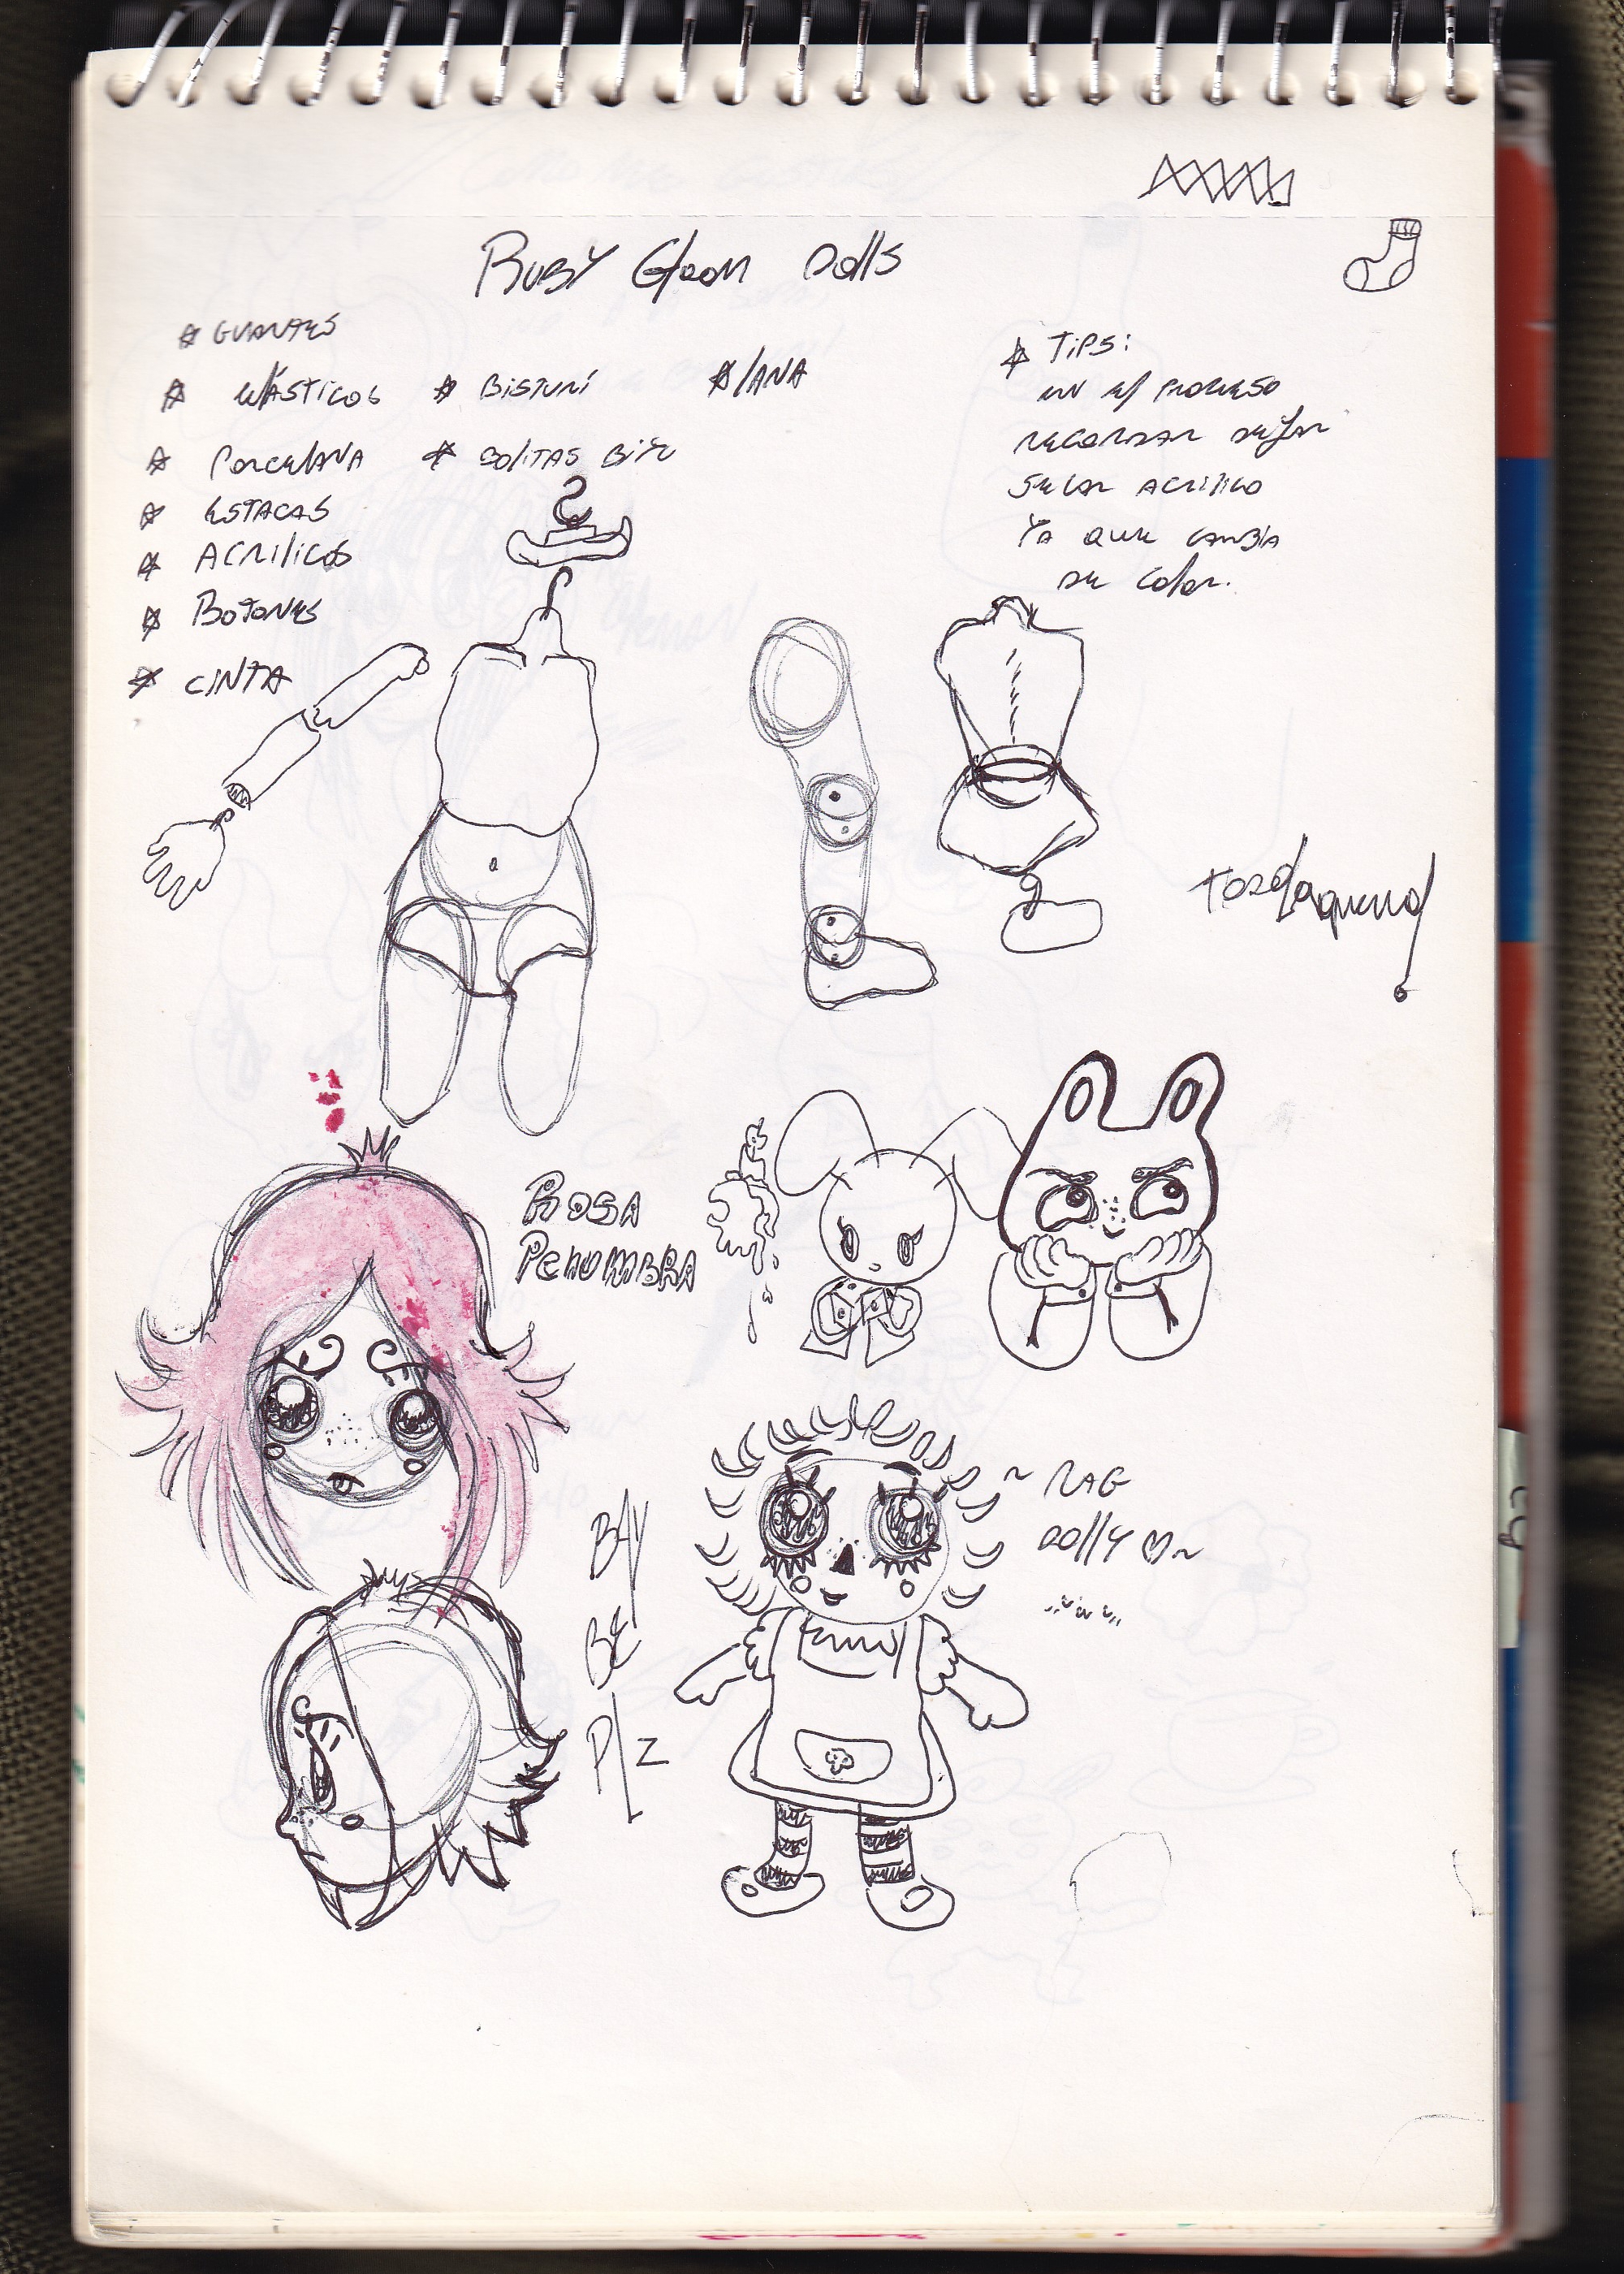 Ruby Gloom Dolls
* GUANTES
* elásticos * Bisturí * lANA
* Porcelana * Bolitas Biyu
* Estacas
* Acrilicos
* Botones
* CINTA
* TiPS:
en el proceso
recordar dejar
secar acrilico
ya que cambia
de color.
ROSA
PENUMBRA
~ RAG
Dolly ♡~
BAY
BE
PlZ